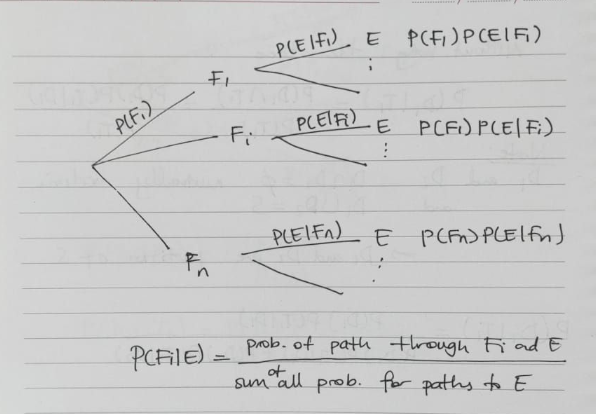 P(E|F₁) E P(F₁)P(E|F₁)
F₁ ⋮
P(F₁)
Fᵢ P(E|Fᵢ) E P(Fᵢ)P(E|Fᵢ)
⋮
P(E|Fn) E P(Fn)P(E|Fn)
Fn ⋮
P(Fi|E) = prob. of path through Fi ad E
sum of all prob. for paths to E